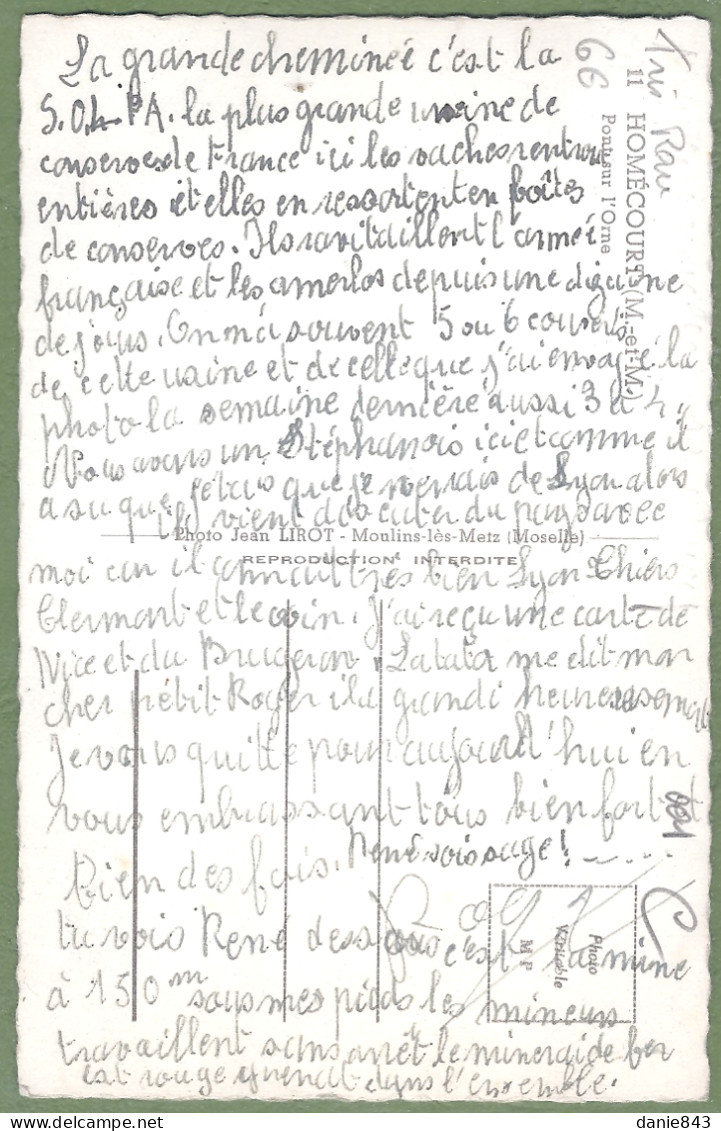 La grande cheminée c'est la
S.O.L.PA. la plus grande usine de
conserves de France ici les vaches rentrent
entières et elles en ressortent en boîtes
de conserves. Ils ravitaillent l'armée
française et les amerlos depuis une dizaine
de jours. On en a souvent 5 ou 6 couverts
de cette usine et de celle que j'ai envoyé la
photo la semaine dernière aussi 3 à 4.
Nous avons un Stéphanois ici et comme il
a su que j'étais que je venais de Lyon alors
il vient discuter du pays avec
Photo Jean LIROT - Moulins-lès-Metz (Moselle)
REPRODUCTION INTERDITE
moi car il connait très bien Lyon Thiers
Clermont et le coin. J'ai reçu une carte de
Nice et du Brugeron. La tata me dit mon
cher petit Roger il a grandi heureusement
Je vous quitte pour aujourd'hui en
vous embrassant tous bien fort et
bien des fois. René sois sage!
Roger
tu vois René dessous c'est la mine
à 150m sous mes pieds les mineurs
travaillent sans arrêt le minerai de fer
est rouge grenat dans l'ensemble.
11 HOMÉCOURT (M.-et-M.)
Pont sur l'Orne
6€
Photo
Véritable
M P
danie843